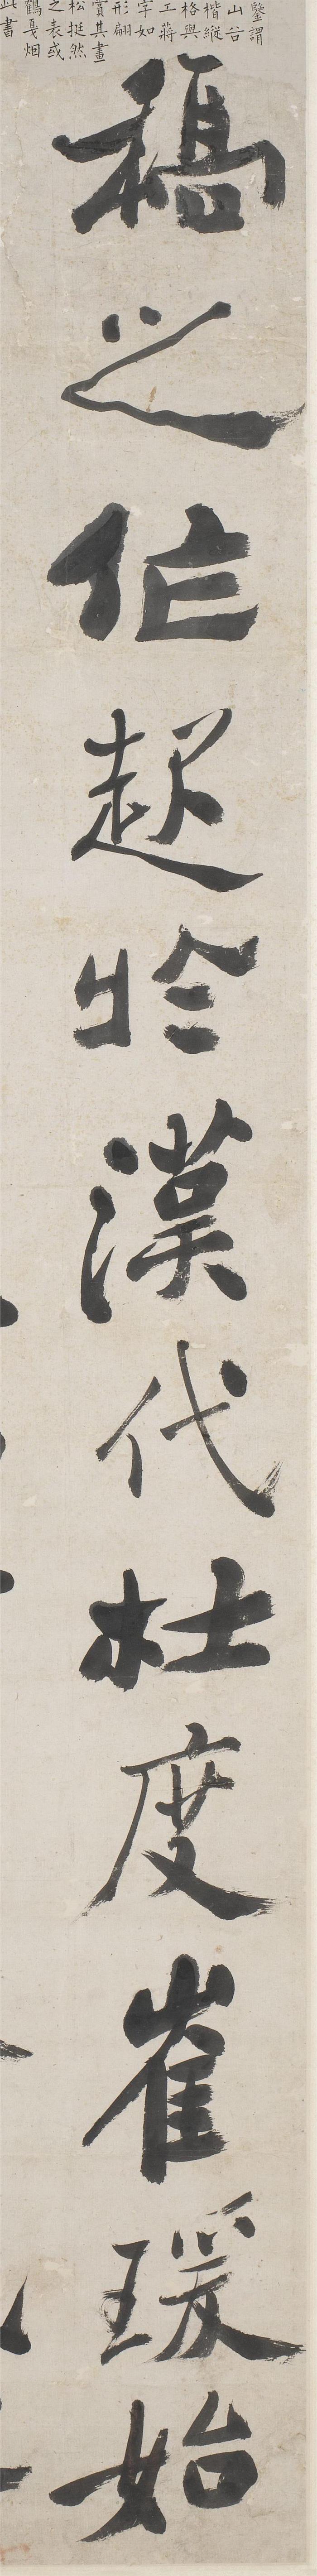 稿之作起於漢代杜度崔瑗始
鑒謂
山谷
楷縱
格與
工蔣
字如
形翩
賞其畫
松挺然
之表或
鶴戛烟
此書